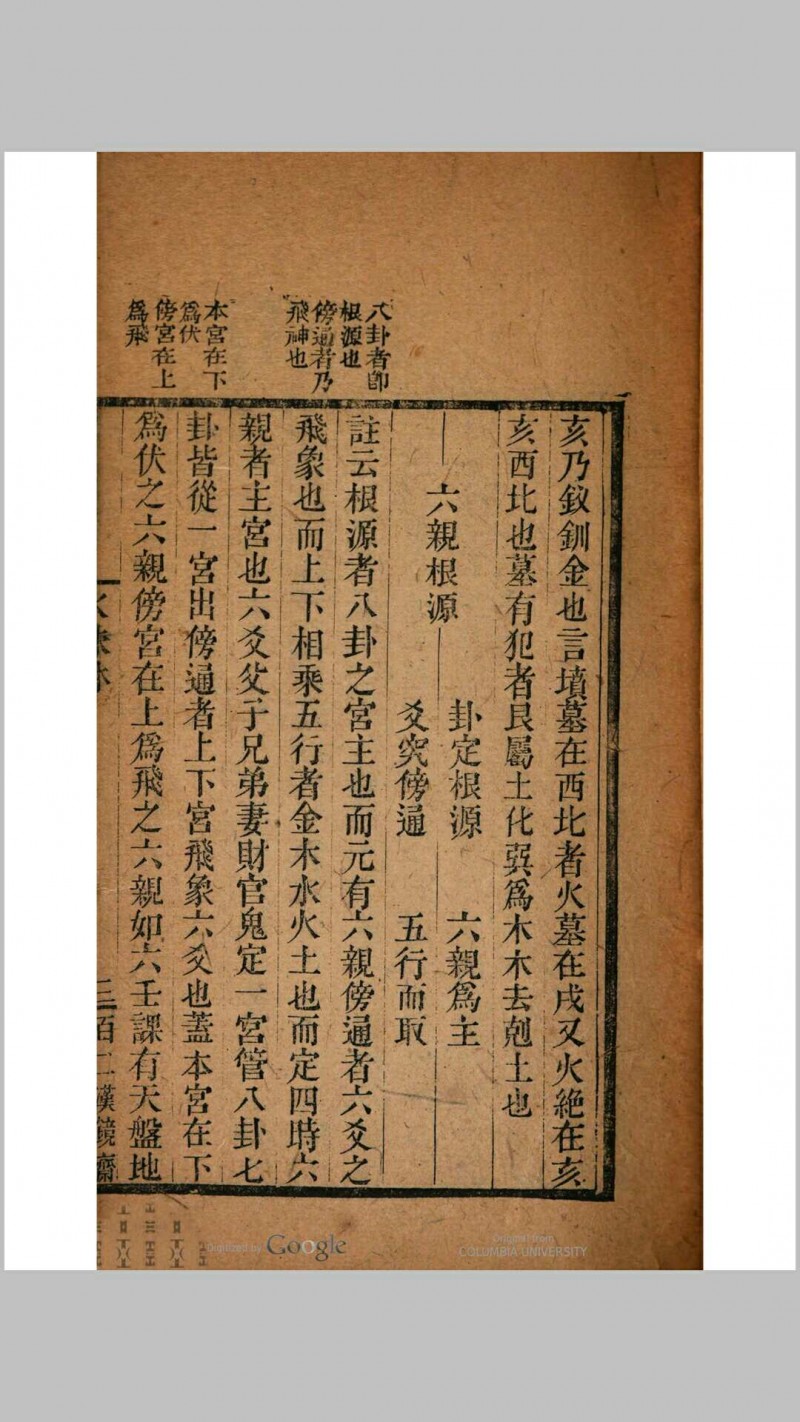 八卦者即
根源也
傍通者乃
飛神也
本宮在下
爲伏
傍宮在上
爲飛
亥乃釵釧金也言墳墓在西北者火墓在戌又火絶在亥
亥西北也墓有犯者艮屬土化巽爲木木去剋土也
六親根源
卦定根源 六親爲主
爻究傍通 五行而取
註云根源者八卦之宮主也而元有六親傍通者六爻之
飛象也而上下相乘五行者金木水火土也而定四時六
親者主宮也六爻父子兄弟妻財官鬼定一宮管八卦七
卦皆從一宮出傍通者上下宮飛象六爻也蓋本宮在下
爲伏之六親傍宮在上爲飛之六親如六壬課有天盤地
百二漢鏡齋
Digitized by Google
Original from
COLUMBIA UNIVERSITY